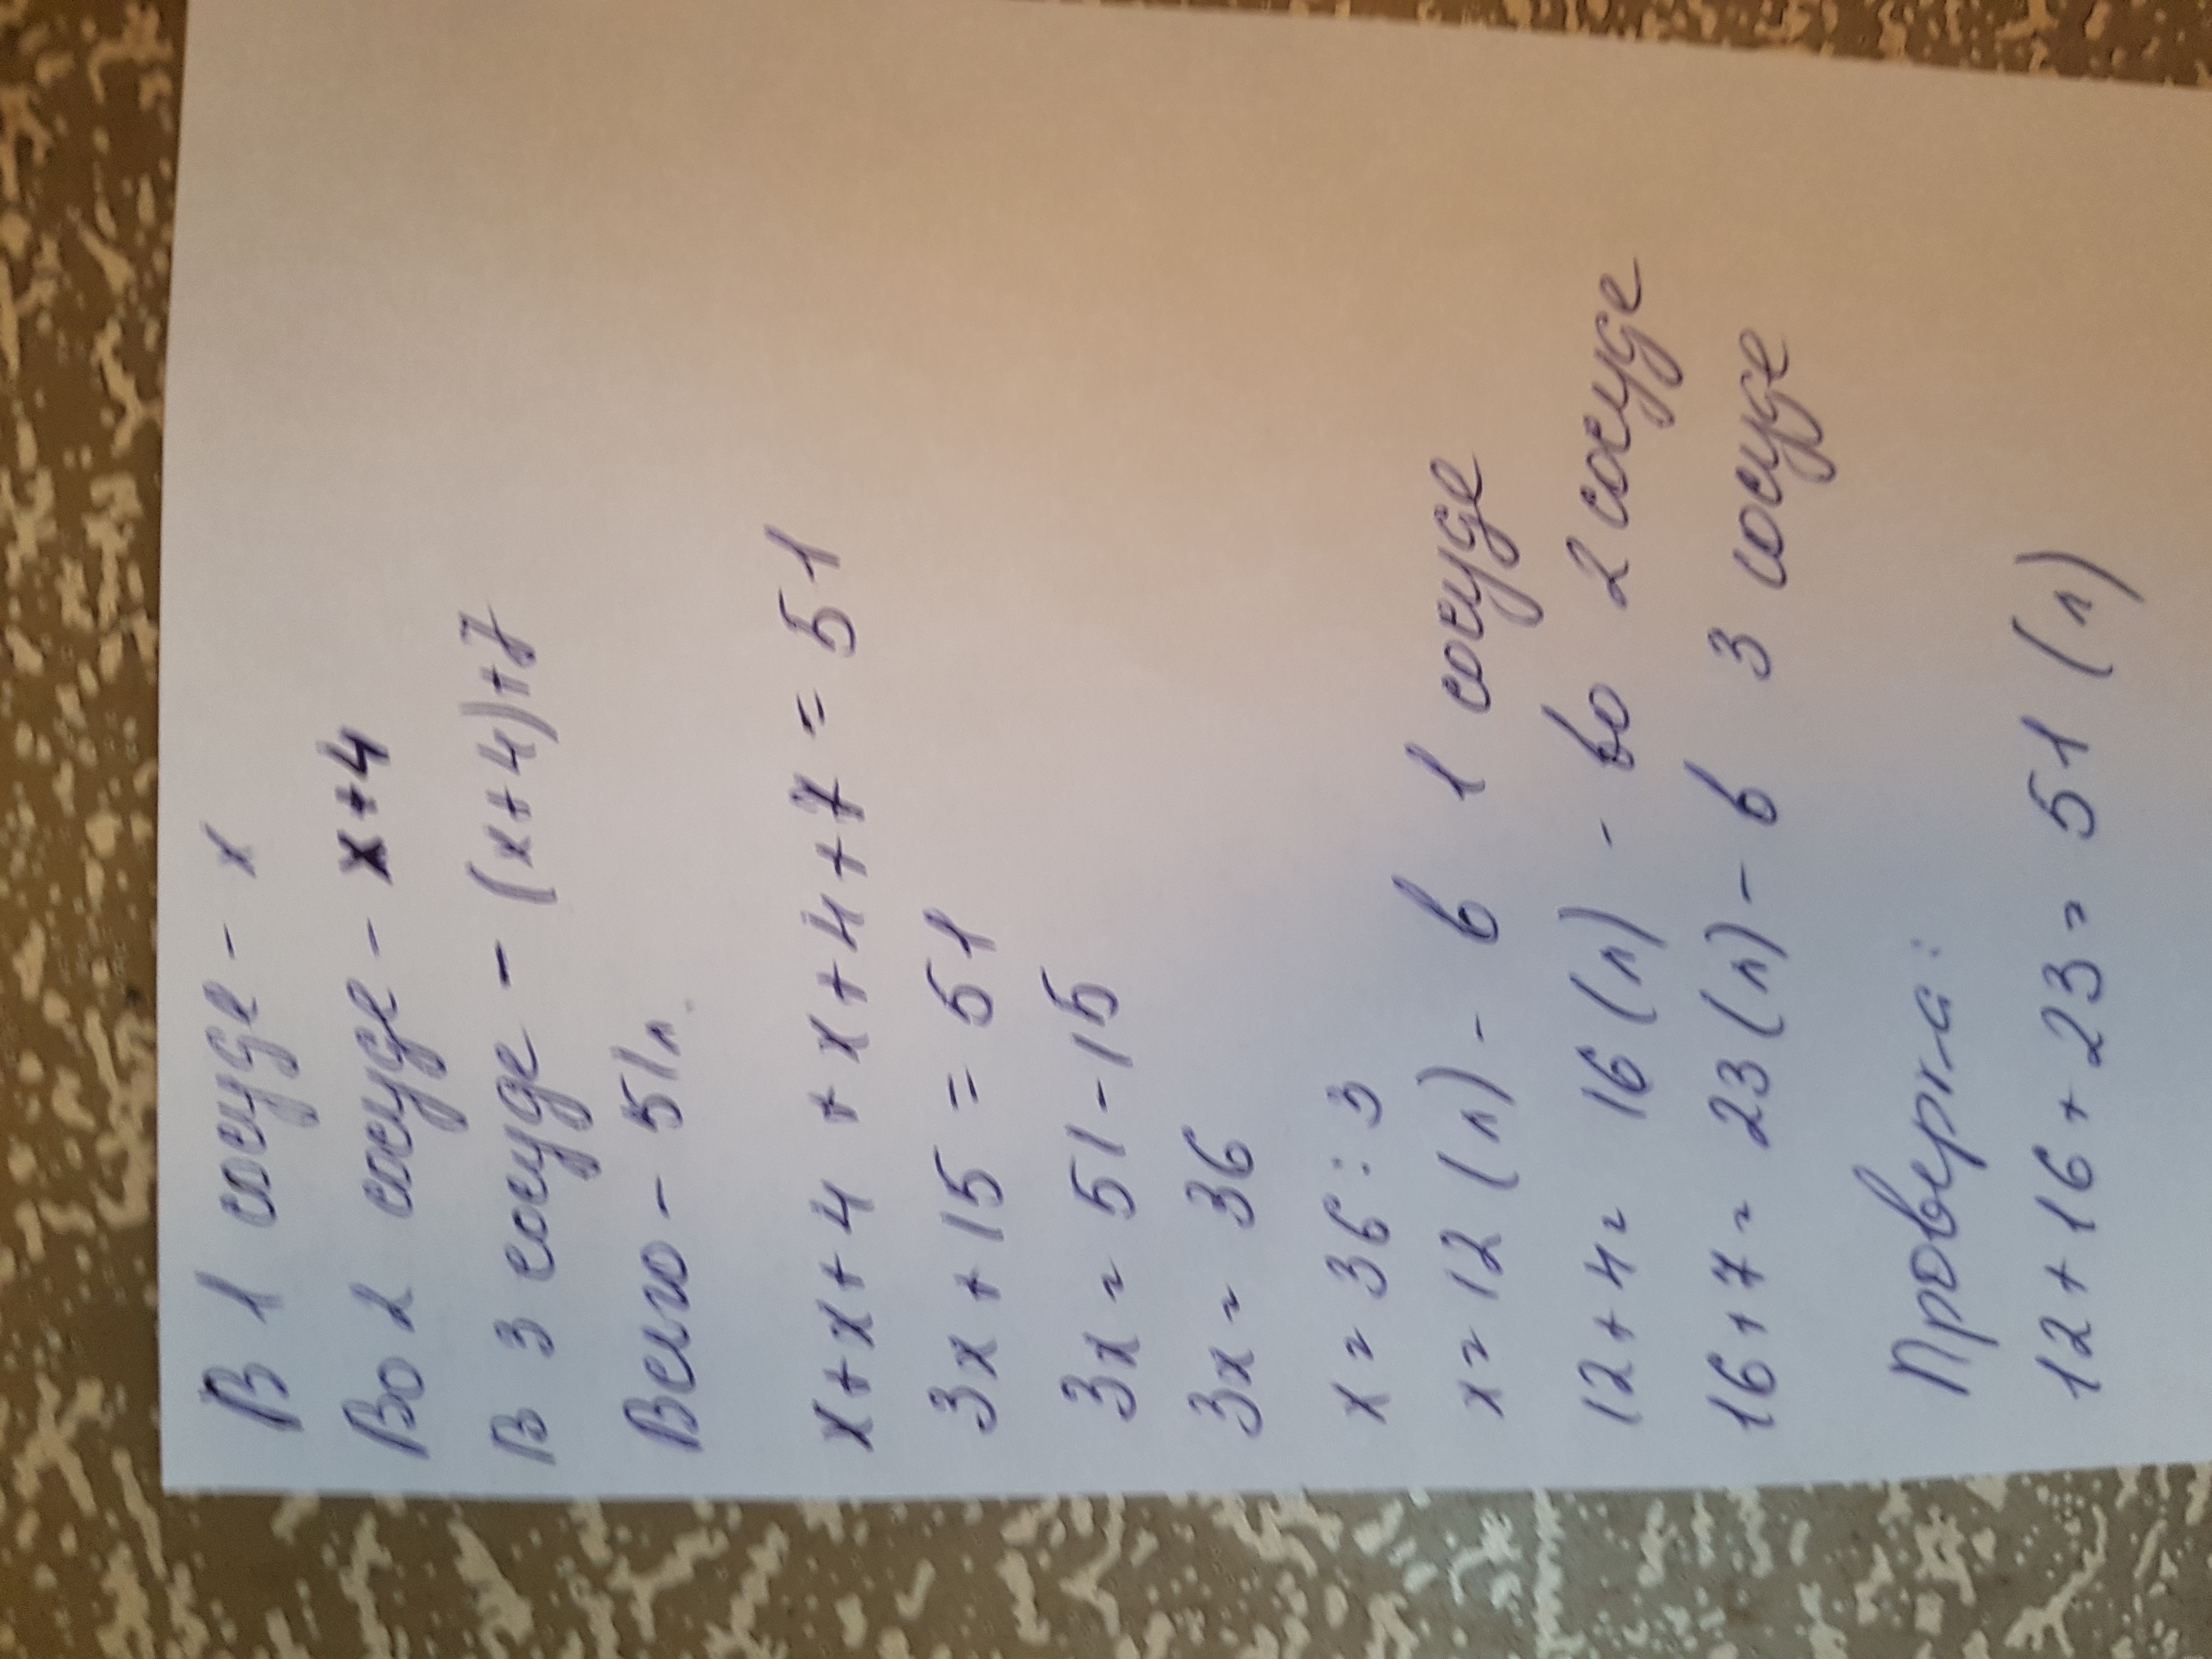 В 1 сосуде - x
Во 2 сосуде - x+4
В 3 сосуде - (x+4)+7
Всего - 51л.
x+x+4+x+4+7=51
3x+15=51
3x=51-15
3x=36
x=36:3
x=12(л)-в 1 сосуде
12+4=16(л)-во 2 сосуде
16+7=23(л)-в 3 сосуде
Проверка:
12+16+23=51(л)